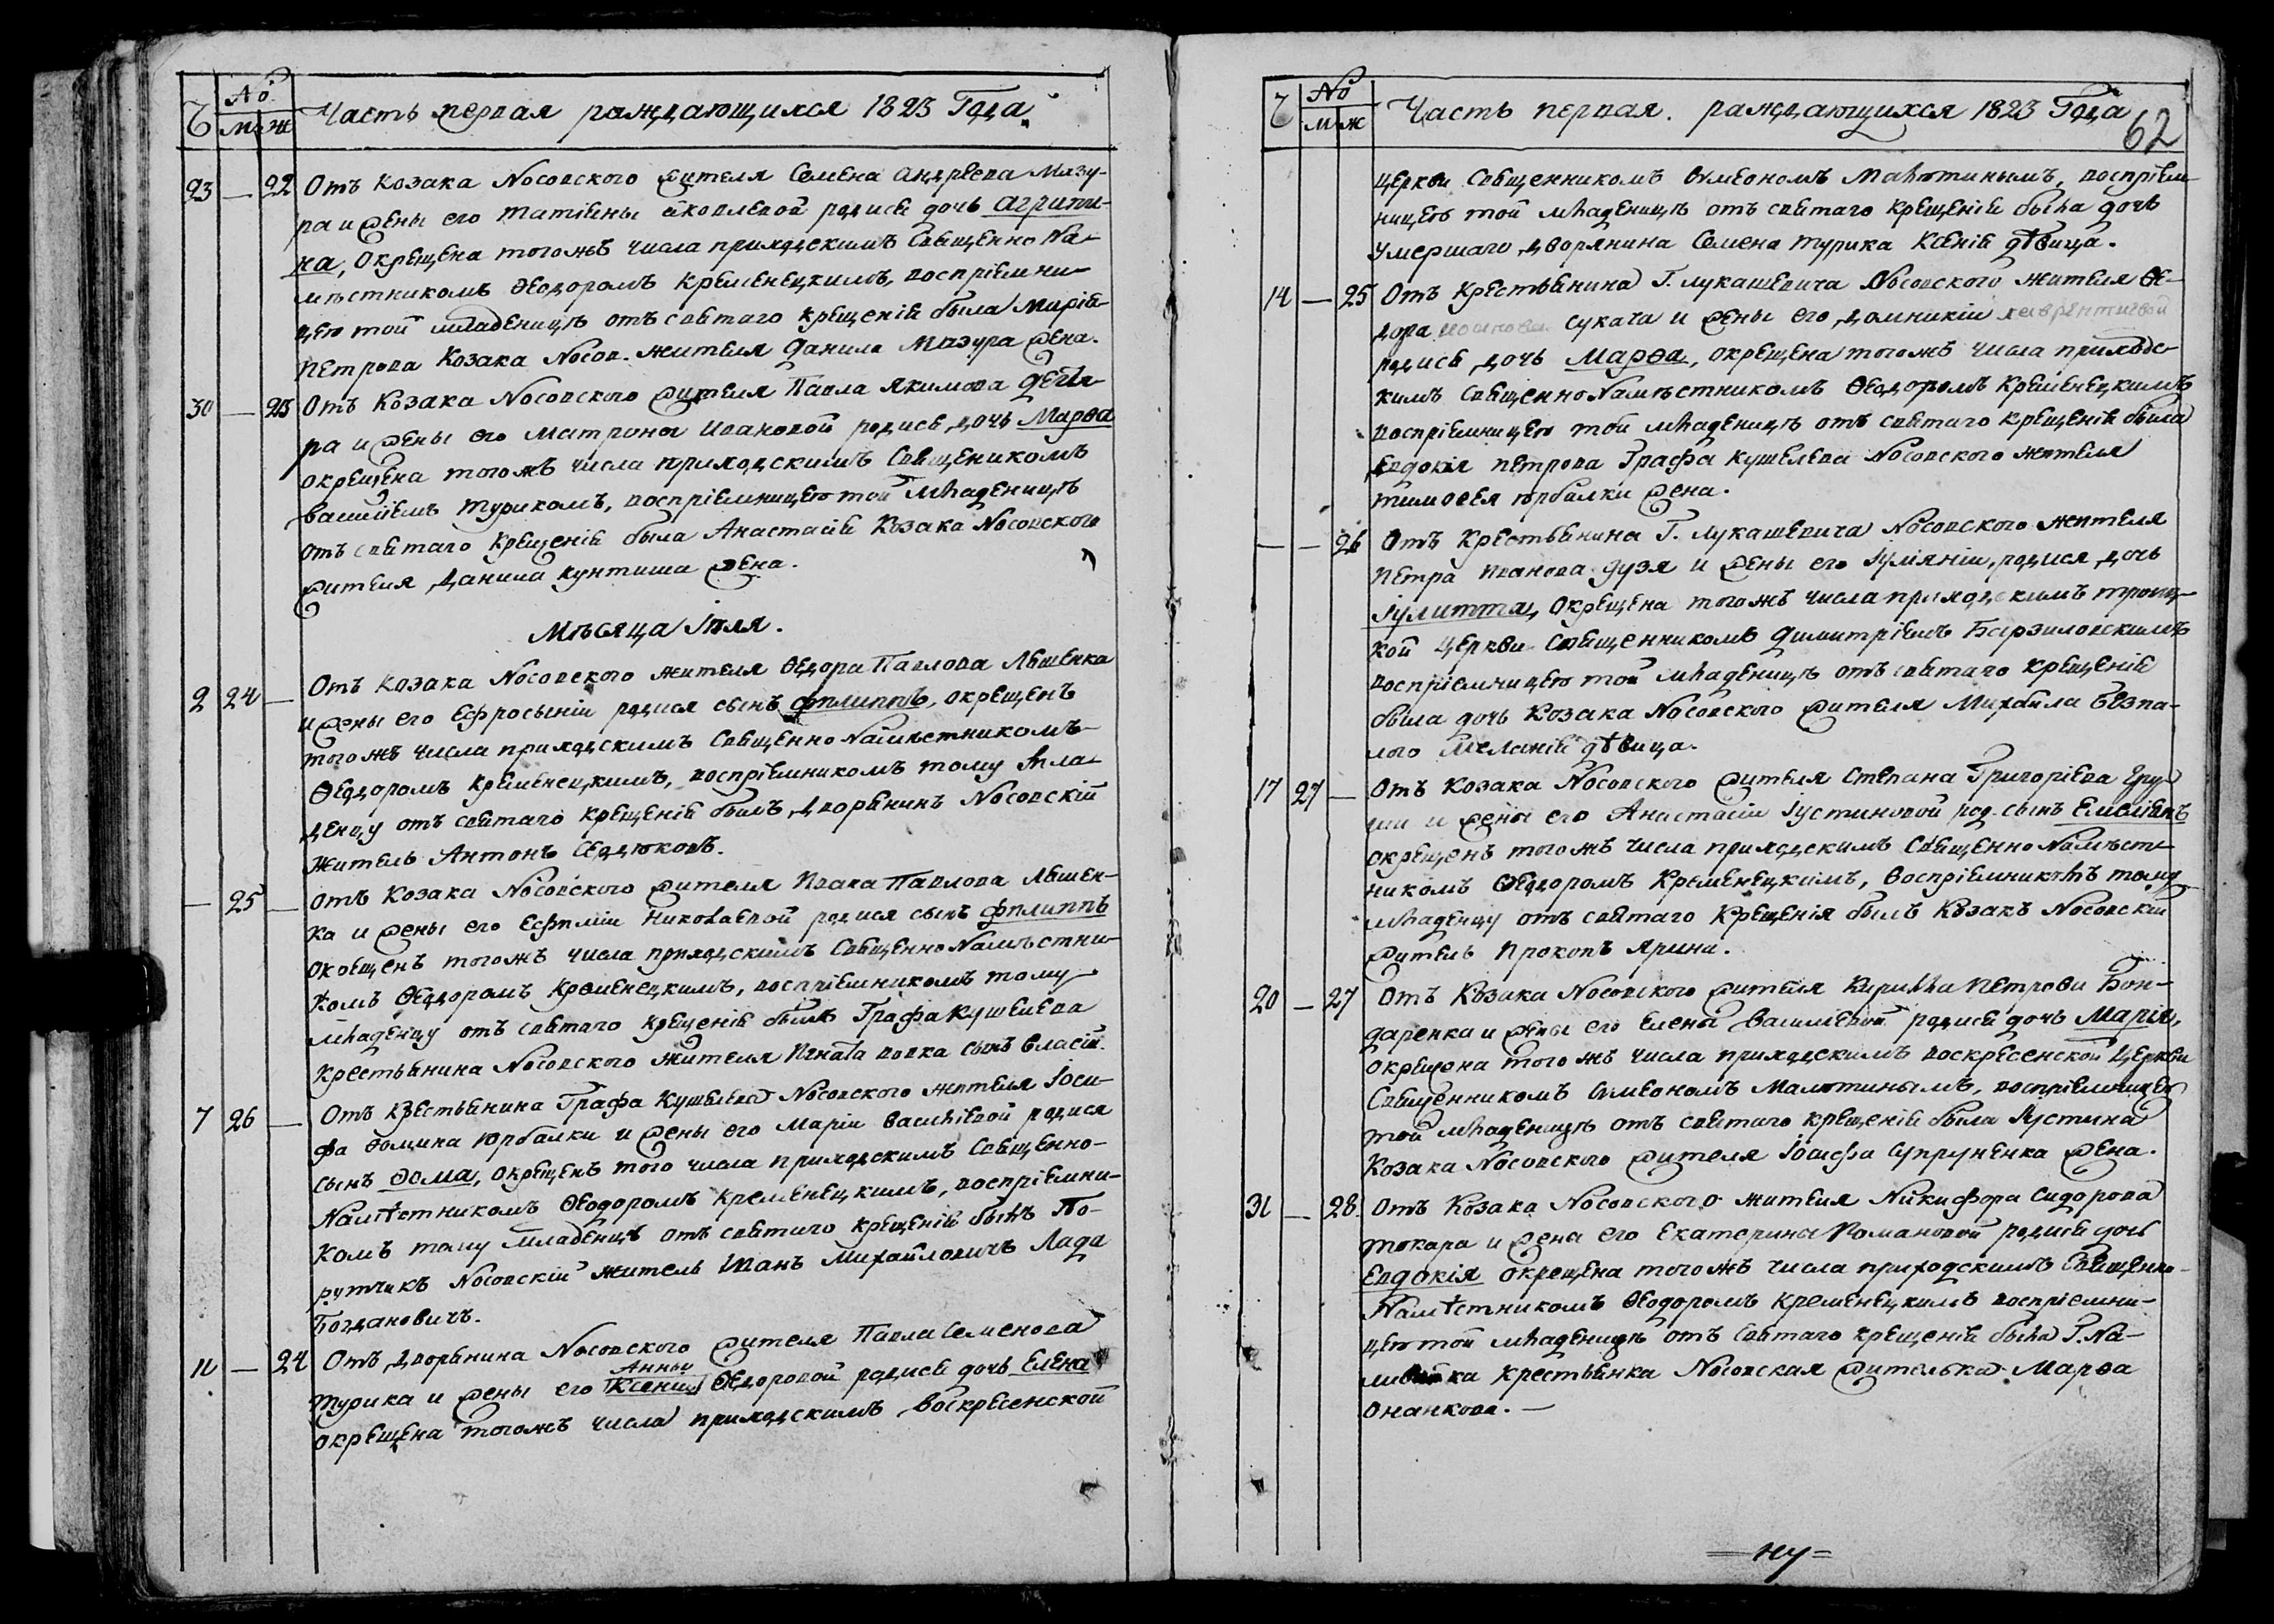 №
Ч М Ж Часть первая раждающихся 1823 Года.
23 — 22 Отъ Козака Носовского жителя Семена Андреева Мазу-
ра и жены его Татіяны Яковлевой родися дочь Агрипи-
на, Окрещена тогожъ числа приходскимъ Священно На-
мѣстникомъ Ѳеодоромъ Кременецкимъ, воспріемни-
цею той младеницѣ отъ святаго крещенія была Марія
Петрова Козака Носов. жителя Данила Мазура жена.
30 — 23 Отъ Козака Носовского жителя Павла Якимова Дегтя-
ра и жены его Матроны Ивановой родися дочь Марѳа
окрещена тогожъ числа приходскимъ Священикомъ
Василіемъ Турикомъ, воспріемницею той младеницѣ
отъ святаго крещенія была Анастасія Козака Носовского
жителя Данила Кунтиша жена.
Мѣсяца Іюля.
2 24 — Отъ Козака Носовского жителя Ѳедора Павлова Ляшенка
и жены его Ефросыніи родися сынъ Филиппъ, окрещенъ
тогожъ числа приходскимъ Священно Намѣстникомъ
Ѳеодоромъ Кременецкимъ, воспріемникомъ тому мла-
денцу отъ святаго крещенія былъ Дворянинъ Носовскій
житель Антонъ Сердюковъ.
— 25 — Отъ Козака Носовского жителя Ивана Павлова Ляшен-
ка и жены его Есфиміи Николаевой родися сынъ Филиппъ
окрещенъ тогожъ числа приходскимъ Священно Намѣстни-
комъ Ѳеодоромъ Кременецкимъ, воспріемникомъ тому
младенцу отъ святаго крещенія былъ Графа Кушелева
Крестьянина Носовского жителя Игната Вовка сынъ Власій.
7 26 — Отъ Крестьянина Графа Кушелева Носовского жителя Іоси-
фа Ѳомина Юрбалки и жены его Маріи Василіевой родися
сынъ Ѳома, окрещенъ того числа приходскимъ Священно-
Намѣстникомъ Ѳеодоромъ Кременецкимъ, воспріемни-
комъ тому младенцѣ отъ святаго крещенія былъ По-
рутчикъ Носовскій житель Иванъ Михайловичъ Лада
Богдановичъ.
11 — 24 Отъ Дворянина Носовского жителя Павла Семенова
Анны
Турика и жены его Ксении Ѳедоровой родися дочь Елена
окрещена тогожъ числа приходскимъ Воскресенской
№
Ч М Ж Часть первая. раждающихся 1823 Года
62
церкви Священникомъ Симеономъ Малютинымъ, воспріем-
ницею той младеницѣ отъ святаго крещенія была дочь
умершаго дворянина Семена Турика Ксенія дѣвица.
14 — 25 Отъ Крестьянина Г. Лукашевича Носовского жителя Ѳе-
дора Иоанова Сукача и жены его Домникіи Лаврентіевой
родися дочь Марѳа, окрещена тогожъ числа приходс-
кимъ Священно Намѣстникомъ Ѳеодоромъ Кременецкимъ
воспріемницею той младеницѣ отъ святаго крещенія была
Евдокія Петрова Графа Кушелева Носовского жителя
Тимоѳея Юрбалки жена.
— — 26 Отъ Крестьянина Г. Лукашевича Носовского жителя
Петра Иванова Дузя и жены его Іуліяніи, родися дочь
Іулитта, Окрещена тогожъ числа приходскимъ Троиц-
кой церкви Священникомъ Димитріемъ Барзиловскимъ
воспріемницею той младеницѣ отъ святаго крещенія
была дочь Козака Носовского жителя Михайла Безпа-
лого Меланія дѣвица.
17 27 — Отъ Козака Носовского жителя Степана Григоріева Гру-
ши и жены его Анастасіи Іустиновой род. сынъ Емеліянъ
окрещенъ тогожъ числа приходскимъ Священно Намѣст-
никомъ Ѳеодоромъ Кременецкимъ, воспріемникомъ тому
младенцу отъ святаго крещенія былъ Козакъ Носовскій
житель Прокопъ Ярина.
20 — 27 Отъ Козака Носовского жителя Кирилла Петрова Бон-
даренка и жены его Елены Василіевой родися дочь Марія,
окрещена тогожъ числа приходскимъ Воскресенской Церкви
Священникомъ Симеономъ Малютинымъ, воспріемницею
той младеницѣ отъ святаго крещенія была Іустина
Козака Носовского жителя Іоасфа Супруненка жена.
31 — 28. Отъ Козака Носовского жителя Никифора Сидорова
Токара и жены его Екатерины Романовой родися дочь
Евдокія окрещена тогожъ числа приходскимъ Священно-
Намѣстникомъ Ѳеодоромъ Кременецкимъ воспріемни-
цею той младеницѣ отъ святаго крещенія была Г. На-
ка Крестьянка Носовская жителька Марѳа
Онанкова. —
=ну=